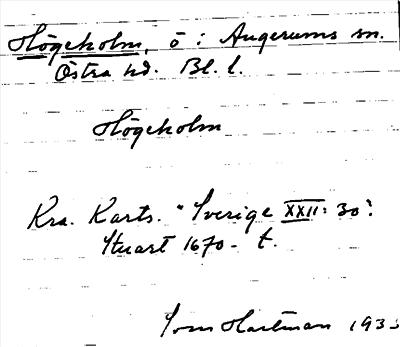 Högeholm, ö i Augerums sn.
Östra hd. Bl. l.
Högeholm
Kra. Karts. "Sverige XXII: 30":
Stuart 1670- t.
Hartman 193